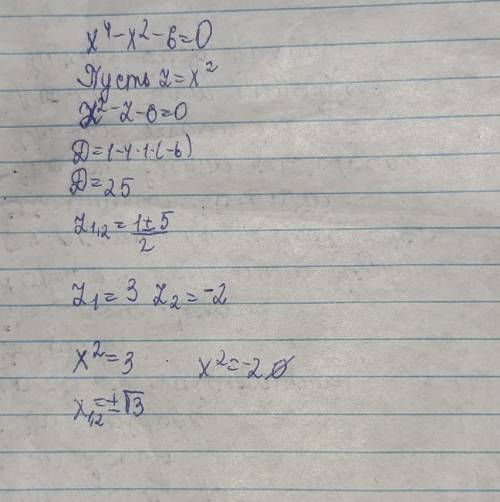 x⁴-x²-6=0
Пусть z=x²
z²-z-6=0
D=1-4·1·(-6)
D=25
z₁,₂=(1±5)/2
z₁=3 z₂=-2
x²=3 x²=-2 ∅
x₁,₂=±√3